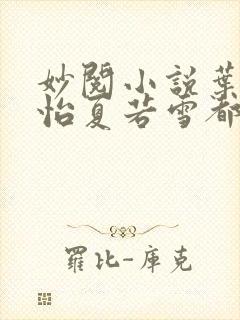 妙閱小說葉
怡夏若雪都
羅比-庫克